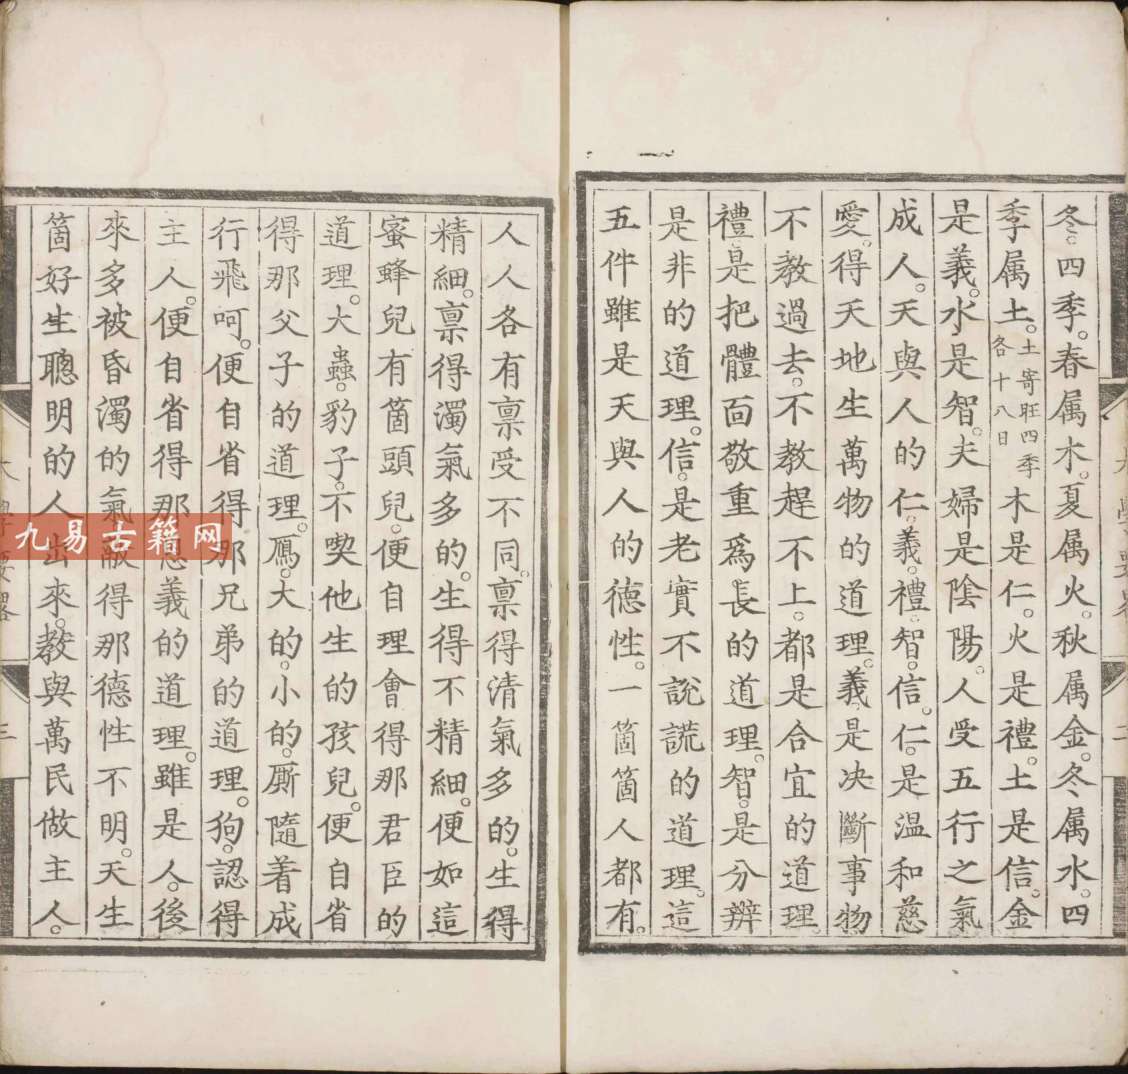 冬。四季。春属木。夏属火。秋属金。冬属水。四
季属土。土寄旺四季各十八日木是仁。火是禮。土是信。金
是義。水是智。夫婦是陰陽。人受五行之氣
成人。天與人的仁。義。禮。智。信。仁。是温和慈
愛。得天地生萬物的道理。義。是决斷事物
不教過去。不教趕不上。都是合宜的道理。
禮。是把體面敬重爲長的道理。智。是分辨
是非的道理。信。是老實不說謊的道理。這
五件雖是天與人的德性。一箇箇人都有。
人人各有稟受不同。稟得清氣多的。生得
精細。稟得濁氣多的。生得不精細。便如這
蜜蜂兒有箇頭兒。便自理會得那君臣的
道理。大蟲。豹子。不喫他生的孩兒。便自省
得那父子的道理。鴈。大的。小的。厮隨着成
行飛呵。便自省得那兄弟的道理。狗。認得
主人。便自省得那義的道理。雖是人。後
來多被昏濁的氣蔽得那德性不明。天生
箇好生聰明的人出來。教與萬民做主人。
大學要畧
三
九易古籍网